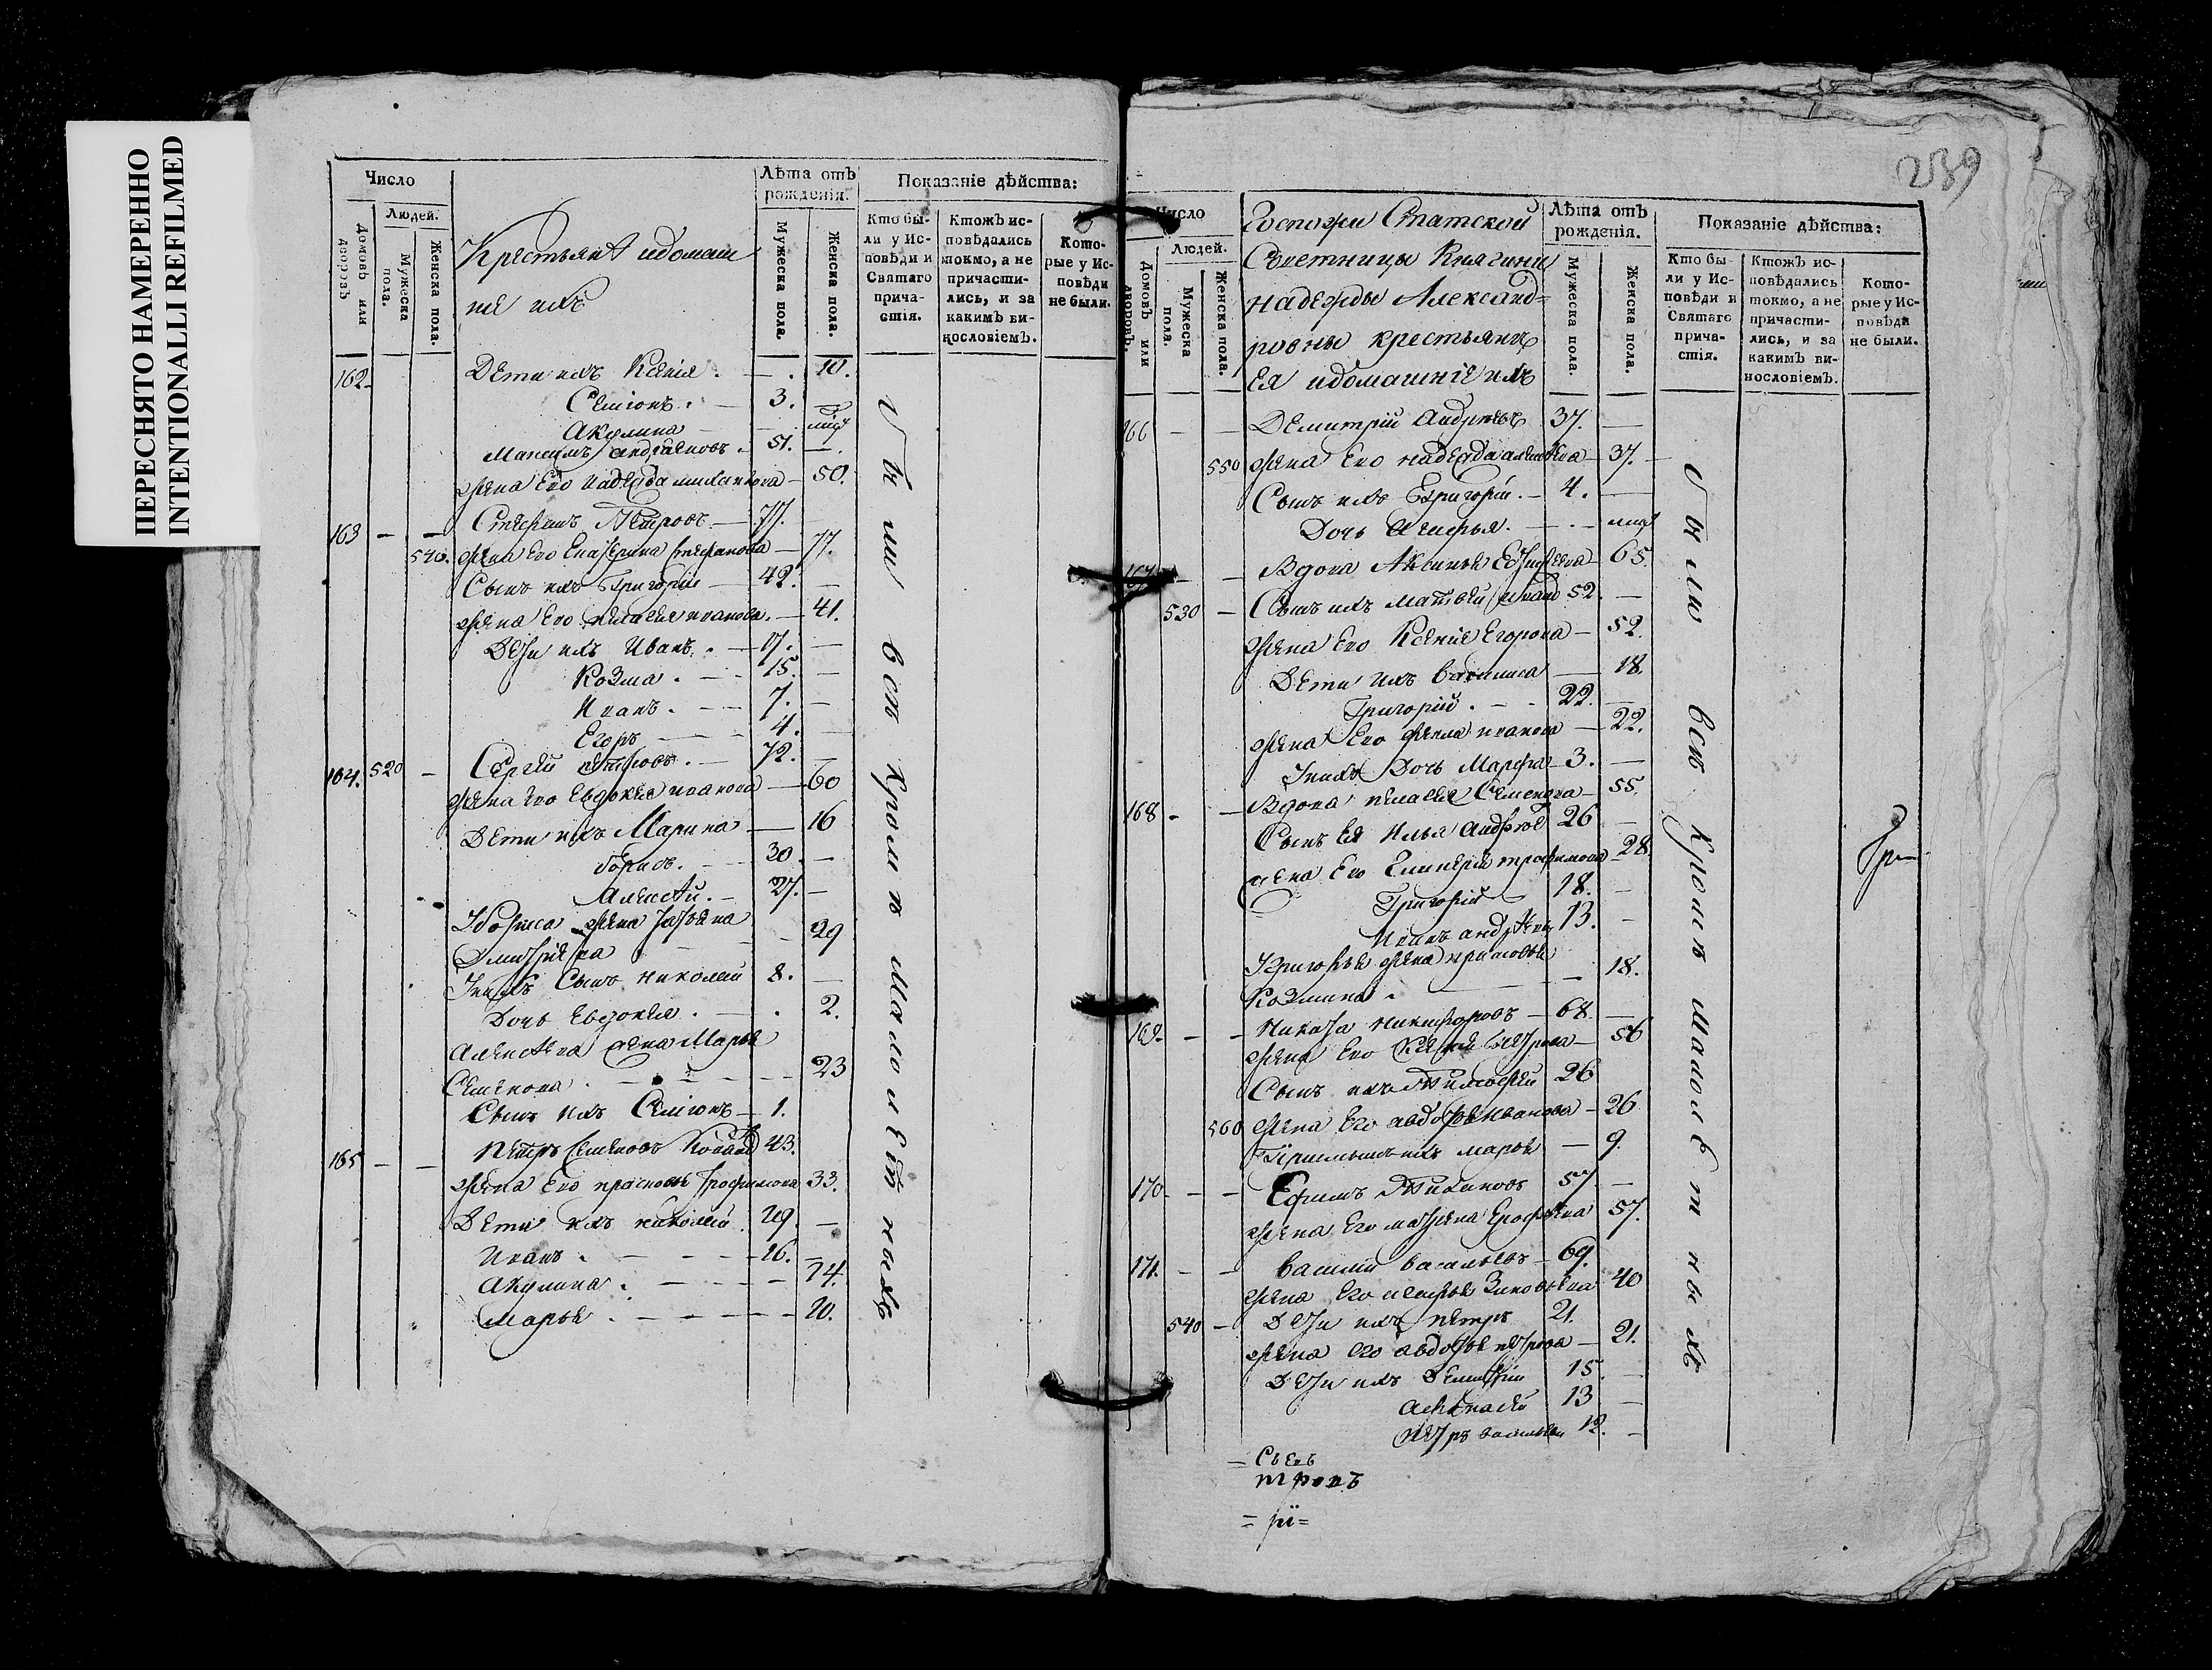 ПЕРЕСНЯТО НАМЕРЕННО
INTENTIONALLI REFILMED
Число
Людей.
Домовъ или дворовъ
Мужеска пола.
Женска пола.
Крестьянѣ идомаш
ніе ихъ
Лѣта отъ рожденія.
Мужеска пола.
Женска пола.
Показаніе дѣйства:
Кто бы-
ли у Ис-
повѣди и
Святаго
прича-
стія.
Ктожъ ис-
повѣдались
токмо, а не
причасти-
лись, и за
какимъ ви-
нословіемъ.
Кото-
рые у Ис-
повѣди
не были.
162 Дети ихъ Ксенія . — . 10.
Симіонъ . — 3. —
Акулина —
Максимъ андріановъ . 51. — .
жена Его надежда — 50.
163 — — Стефанъ Петровъ — 77.
540. жена Его Екатерина Стефанова — 77.
Сынъ ихъ Григорій — 42. —
жена Его пелагея иванова . — 41.
Дети ихъ Иванъ . — 17. —
Козма . — 15. —
Иванъ . — 7. —
Егоръ — 4. —
164. 520 — Сергей петровъ . — 72. —
жена его Евдокея иванова — 60
Дети ихъ Марина — 16
борисъ . — 30. —
Алексѣй . — 27. —
Убориса жена татьяна
Дмитріева — 29
Унихъ Сынъ николай 8. —
Дочь Евдокея . — . 2.
Алексѣева жена Марья
Семенова . — 23
Сынъ ихъ Симіонъ — 1.
165 — — Петръ Семеновъ 43.
жена Его прасковья трофимова 33.
Дети ихъ николай . —
Иванъ . — 16. —
Акулина . — 14.
Марья . — 10.
были всѣ кромѣ малолѣтныхъ
239
Число
Людей.
Домовъ или дворовъ.
Мужеска пола.
Женска пола.
Госпожи Статской
Совѣтницы Княгини
надежды Александ=
ровны крестьяне
Ея идомашніе ихъ
Лѣта отъ рожденія.
Мужеска пола.
Женска пола.
Показаніе дѣйства:
Кто бы-
ли у Ис-
повѣди и
Святаго
прича-
стія.
Ктожъ ис-
повѣдались
токмо, а не
причасти-
лись, и за
какимъ ви-
нословіемъ.
Кото-
рые у Ис-
повѣди
не были.
166 — — Демитрій Андреевъ 37. —
550 жена Его надежда — 37. —
Сынъ ихъ Григорій . — 4. —
Дочь — . —
167 — — Вдова Аксинья — 65.
530 — Сынъ ихъ матвей 52. —
жена Его Ксения Егорова — 52.
Дети ихъ Василиса — 18.
Григорій . — 22. —
жена Его иванова — 22.
Унихъ Дочь Марфа — 3. —
168 — — Вдова пелагея Семенова — 55.
Сынъ Ея Илья 26 —
жена Его трофимова — 28.
Григорій 18. —
Иванъ 13. —
Григорья жена
Козмина . — 18.
169 — — Никита никифоровъ — 68. —
жена Его петрова — 56
Сынъ ихъ Тимофей 26
560 жена Его авдотья иванова — 26
ихъ марья — 9.
170 — — Ефимъ Тихановъ 57 —
жена Его матрена Ерофеева 57.
171. — — василий васильевъ — 69.
жена Его Зиновьева 40
540 — Дети ихъ петръ 21.
жена его авдотья петрова — 21.
Дети ихъ Демитрій 15. —
афанасей 13 —
петръ 12. —
были всѣ кромѣ малолѣтныхъ